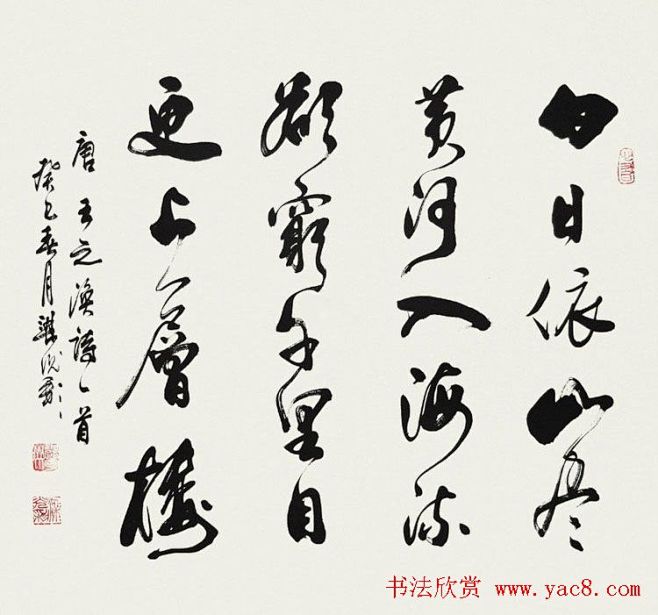 白日依山尽
黄河入海流
欲穷千里目
更上一层楼
唐王之涣诗一首
癸巳春月
书法欣赏 www.yac8.com